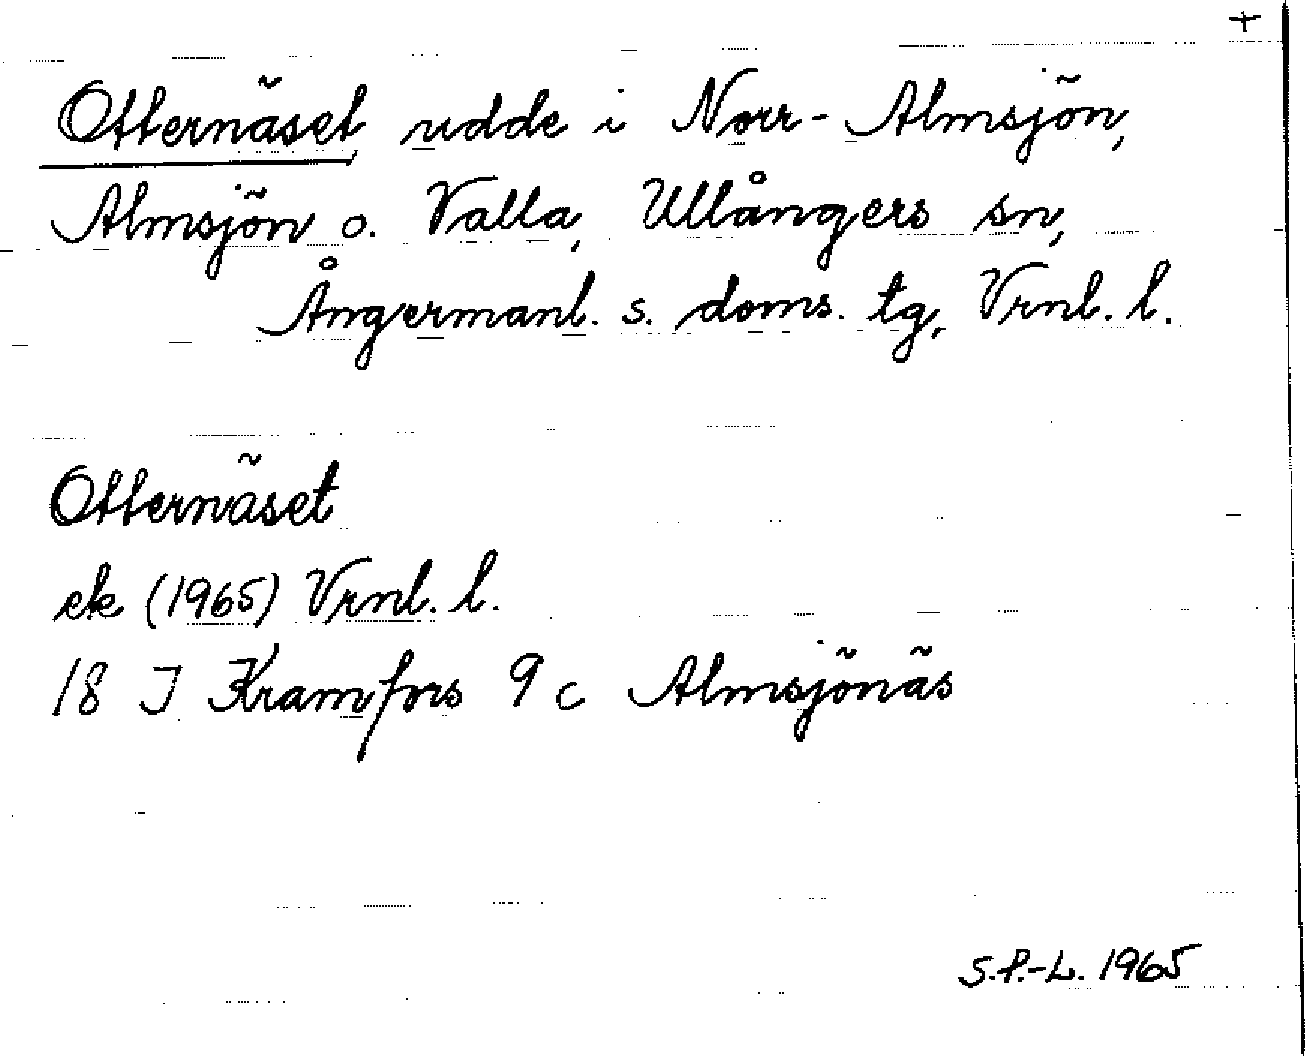 +
Otternäset, udde i Norr-Almsjön,
Almsjön o. Valla, Ullångers sn,
Ångermanl. s. doms. tg, Vrnl. l.
Otternäset
ek (1965) Vrnl. l.
18 I Kramfors 9 c Almsjönäs
S.P.-L. 1965